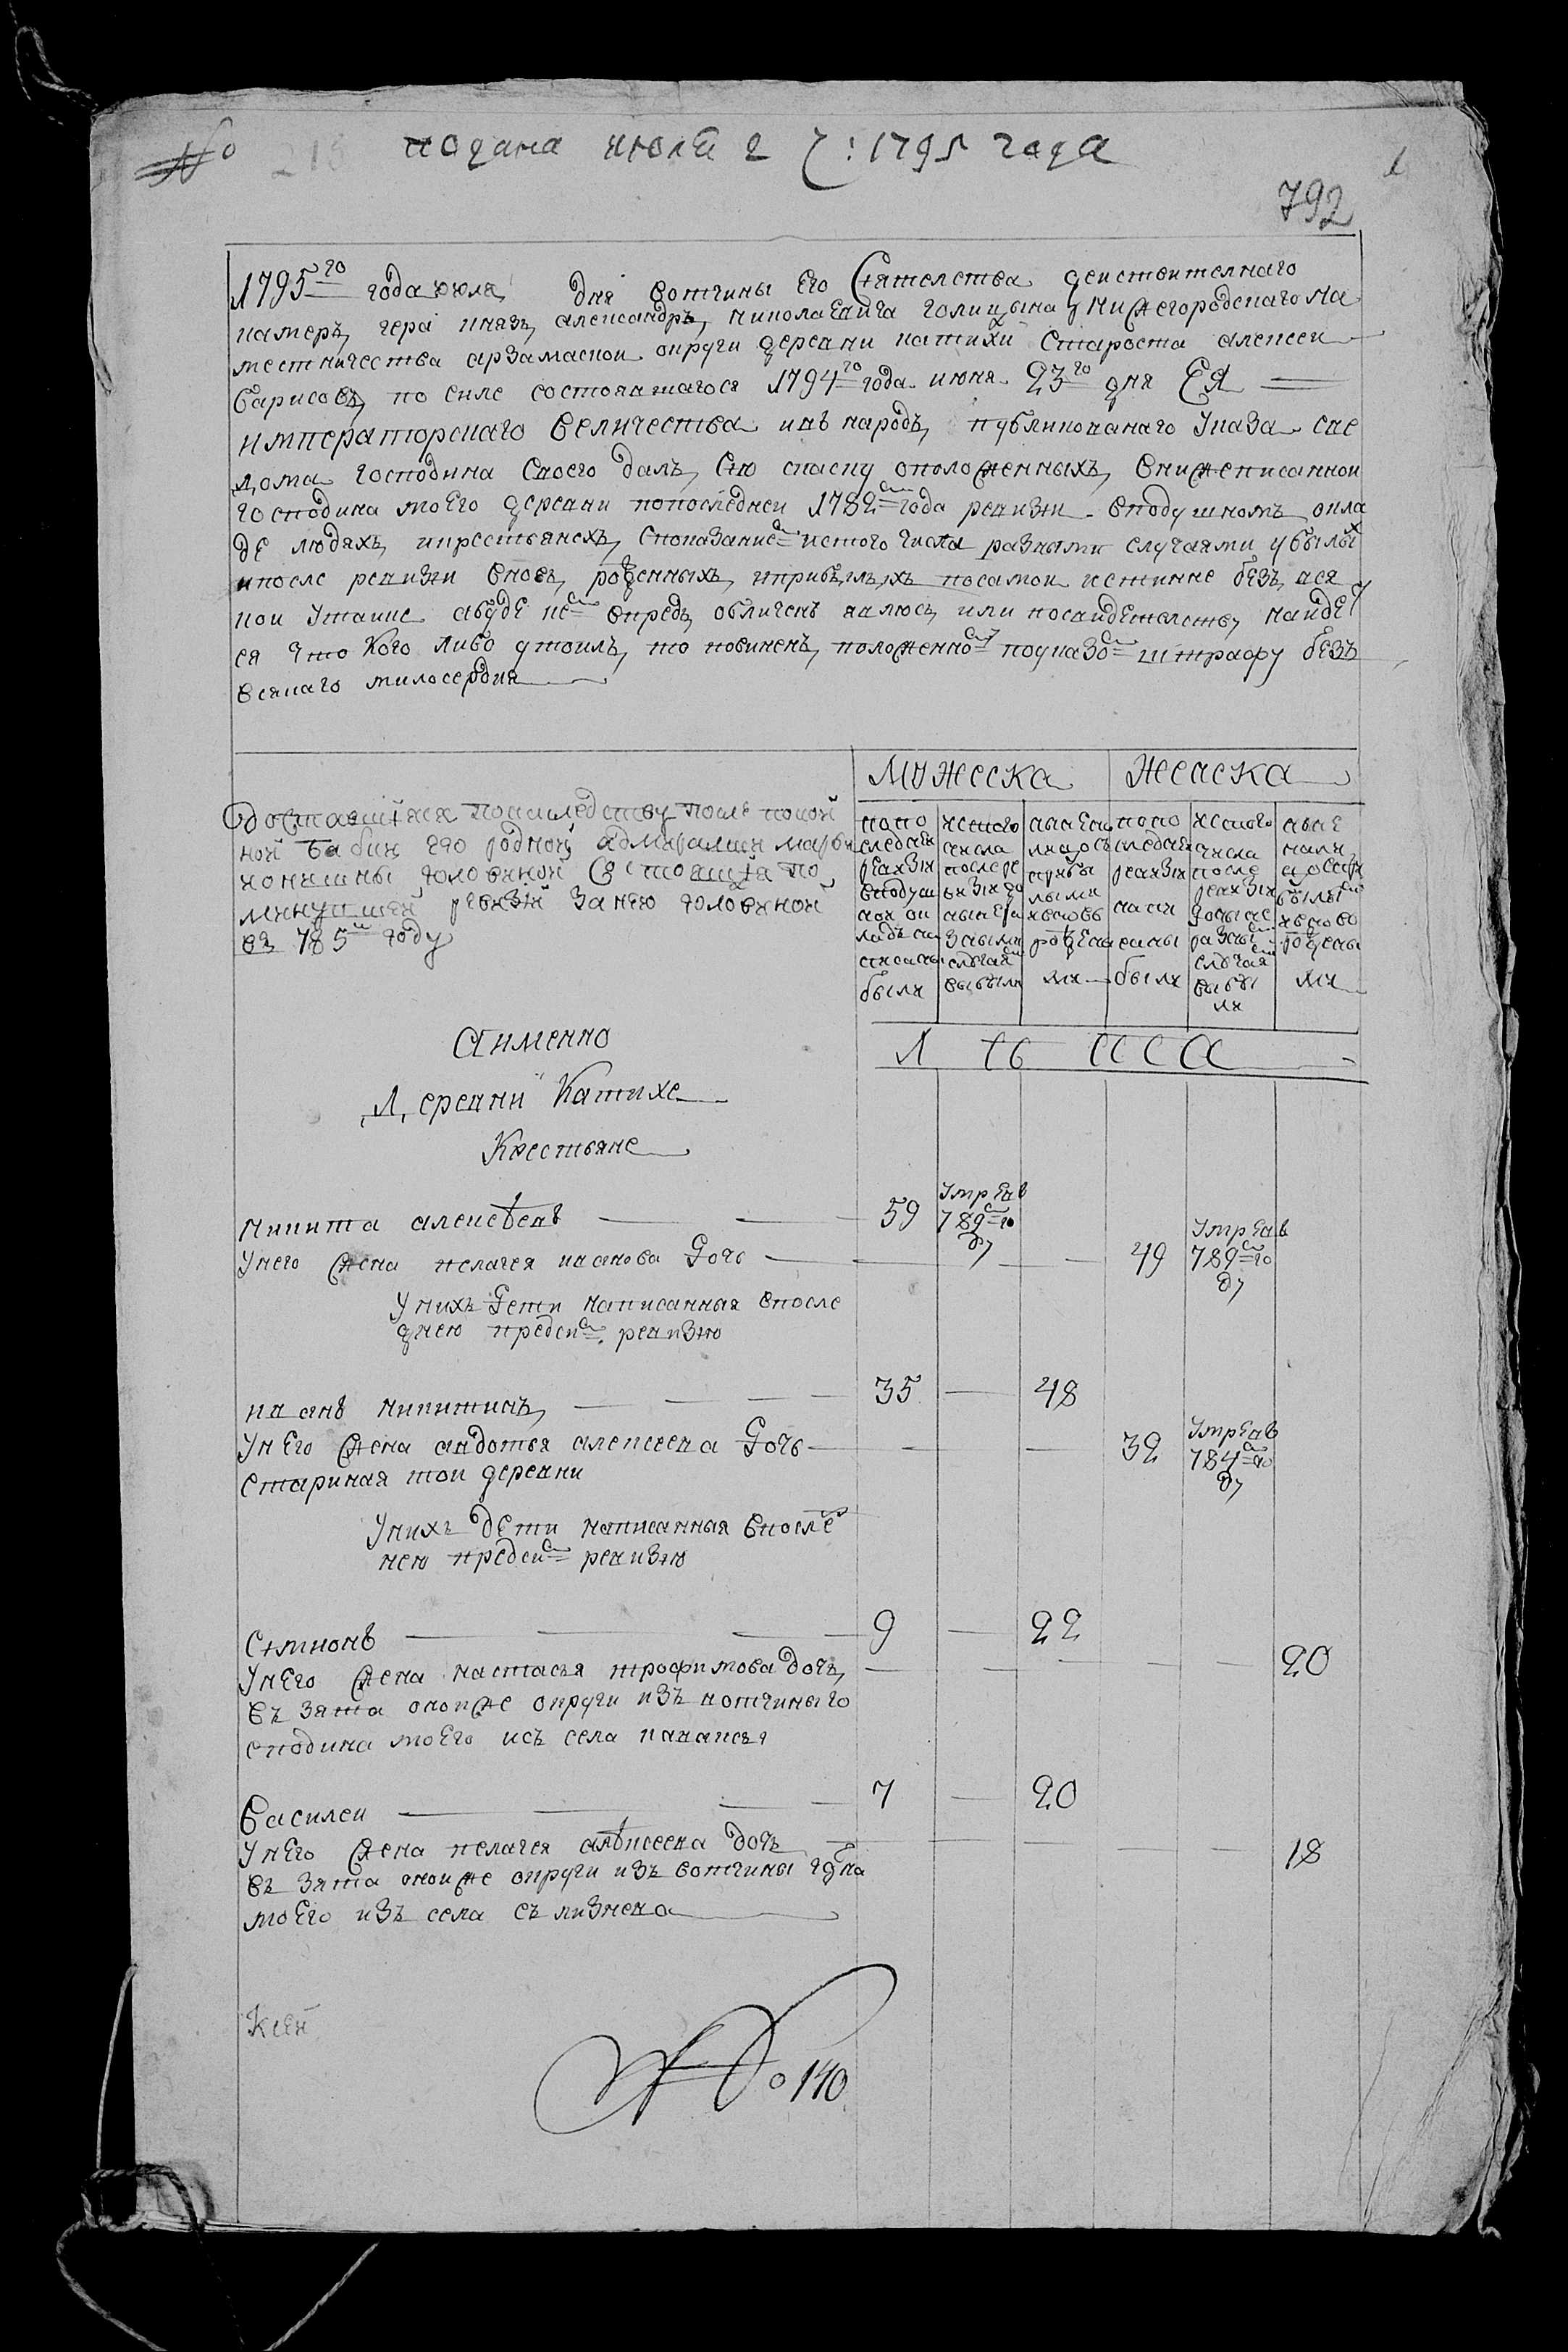 № 218 подана июля 2 ч: 1795 года
792
1795го года июля дня вотчины Его Сиятелства деиствителнаго
камеръ гера князь александръ николаевича голицына нижегородского на
местничества арзамаскои округи деревни катихи староста алексеи
барисовъ по силе состоявшагося 1794го года июня 23го дня ЕЯ
императорскаго величества и въ народъ публикованаго указа све
дома господина своего далъ сию сказку ополо­женныхъ внижеписаннои
господина моего деревни попоследнеи 1782и года ревизии вподушномъ окла
де людяхъ икрестьянехъ споказание истого числа разными случаями убылых
ипосле ревизии вновь рожденныхъ иприбылыхъ посамои истинне безъ вся
кои утаике абуде впредъ обличенъ явлюсь или посвидетелству найдет
ся что кого либо утоилъ то повиненъ положенно поуказо штрафу безъ
всякаго милосердия
Мужеска Женска
Доставшияся понаследству после покой
ной бабки его родной адмиралши марфи
кононшны головиной состоящия по
минувшей ревизии за нею головиной
въ 785м году
попо
следней
ревизии
вподуш
ном ок
ладе на
писаны
были
исного
числа
после ре
визии до
ныне ра
зными
случая
выбыли
ныне на
лицо съ
прибы
лыми
и вновь
рождены
ми
попо
следней
ревизии
напи
саны
были
исного
числа
после
ревизии
доныне
разны
случая
выбы
ли
ныне
нали
цо спри
былы
и вново
рожены
ми
Аименно
Л е т а
Деревни Катихе
Крестьяне
никита алексеевъ 59 умреъв 789м году
Унего жена пелагея иванова дочь 49 умреъв 789м году
Унихъ дети написанныя впосле
днею предси ревизию
иванъ никитинъ 35 48
унЕго жена авдотья алексеева дочь 32 умреъв 784м году
старинная тои деревни
Унихъ дети написанныя впосле
нею предси ревизию
Симионъ 9 22
УнЕго жена настасья трофимова дочь 20
въ зята онои же округи изъ вотчины го
сподина моЕго исъ села панансъя
Василеи 7 20
УнЕго жена пелагея алексеева дочь 18
въ зята онои же округи изъ вотчины гдна
моЕго изъ села съ лизнева
Ксей
№ 140